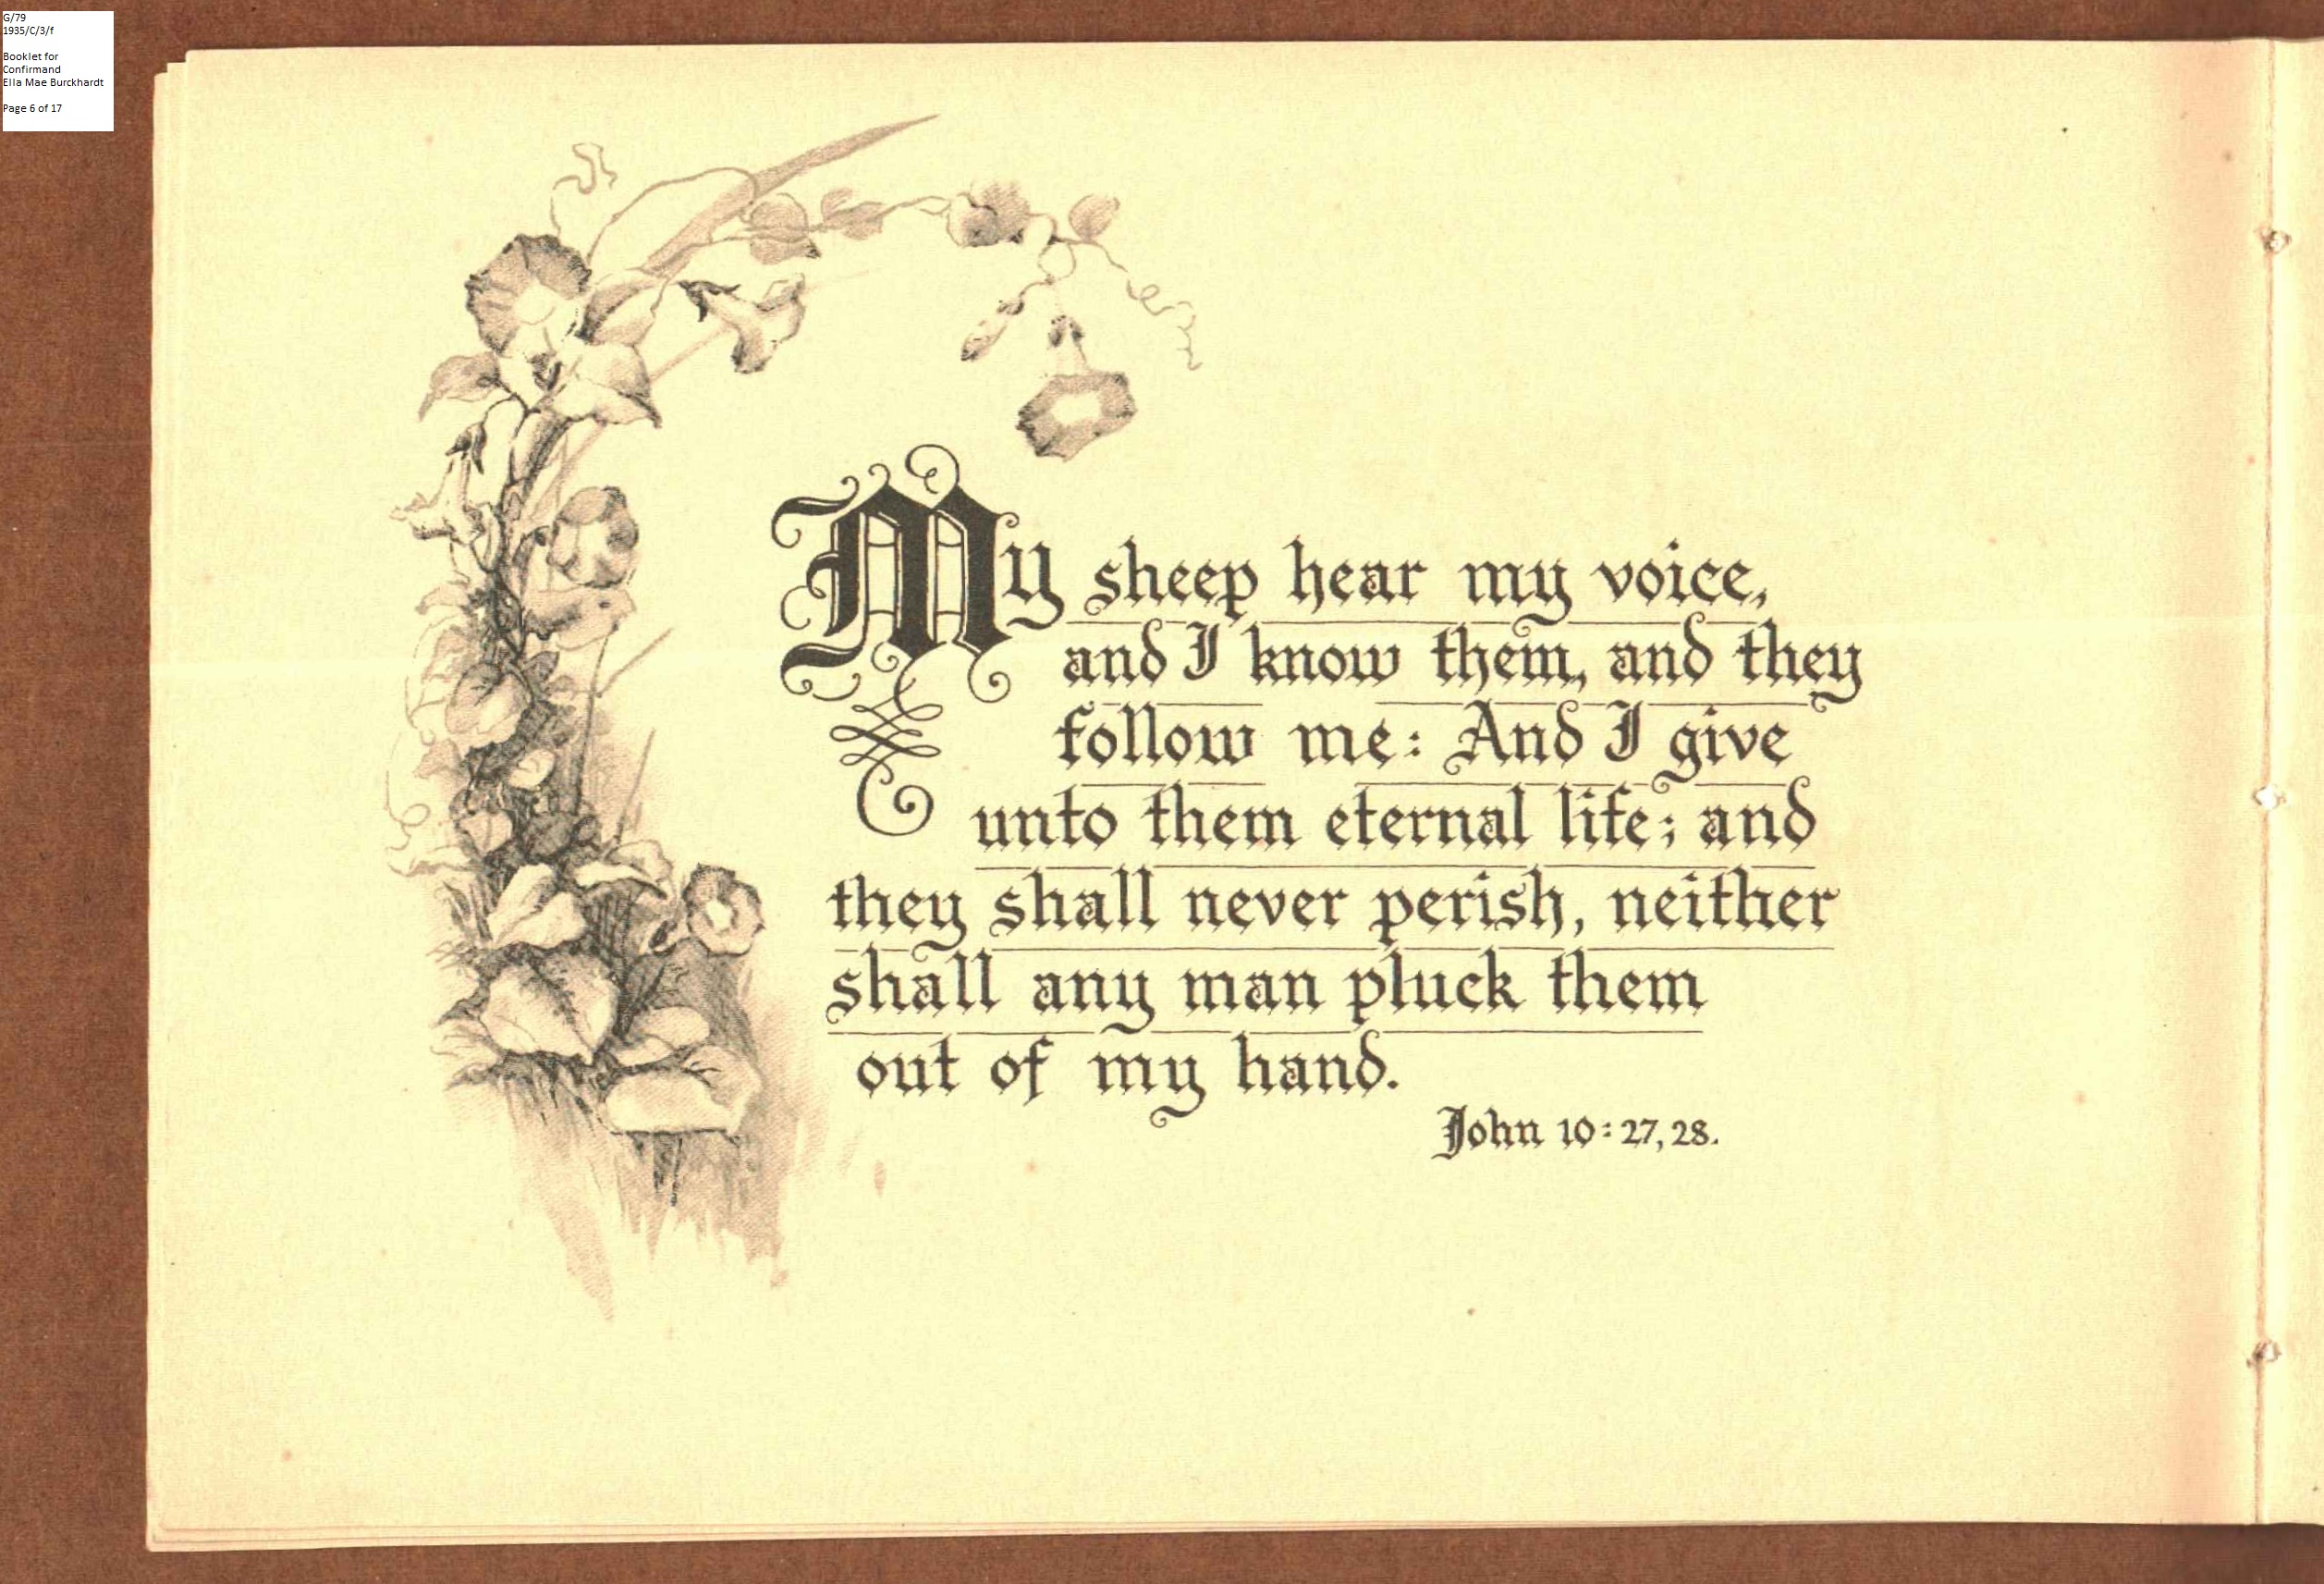 G/79
1935/C/3/f
Booklet for
Confirmand
Ella Mae Burckhardt
Page 6 of 17
My sheep hear my voice,
and I know them, and they
follow me: And I give
unto them eternal life; and
they shall never perish, neither
shall any man pluck them
out of my hand.
John 10:27,28.